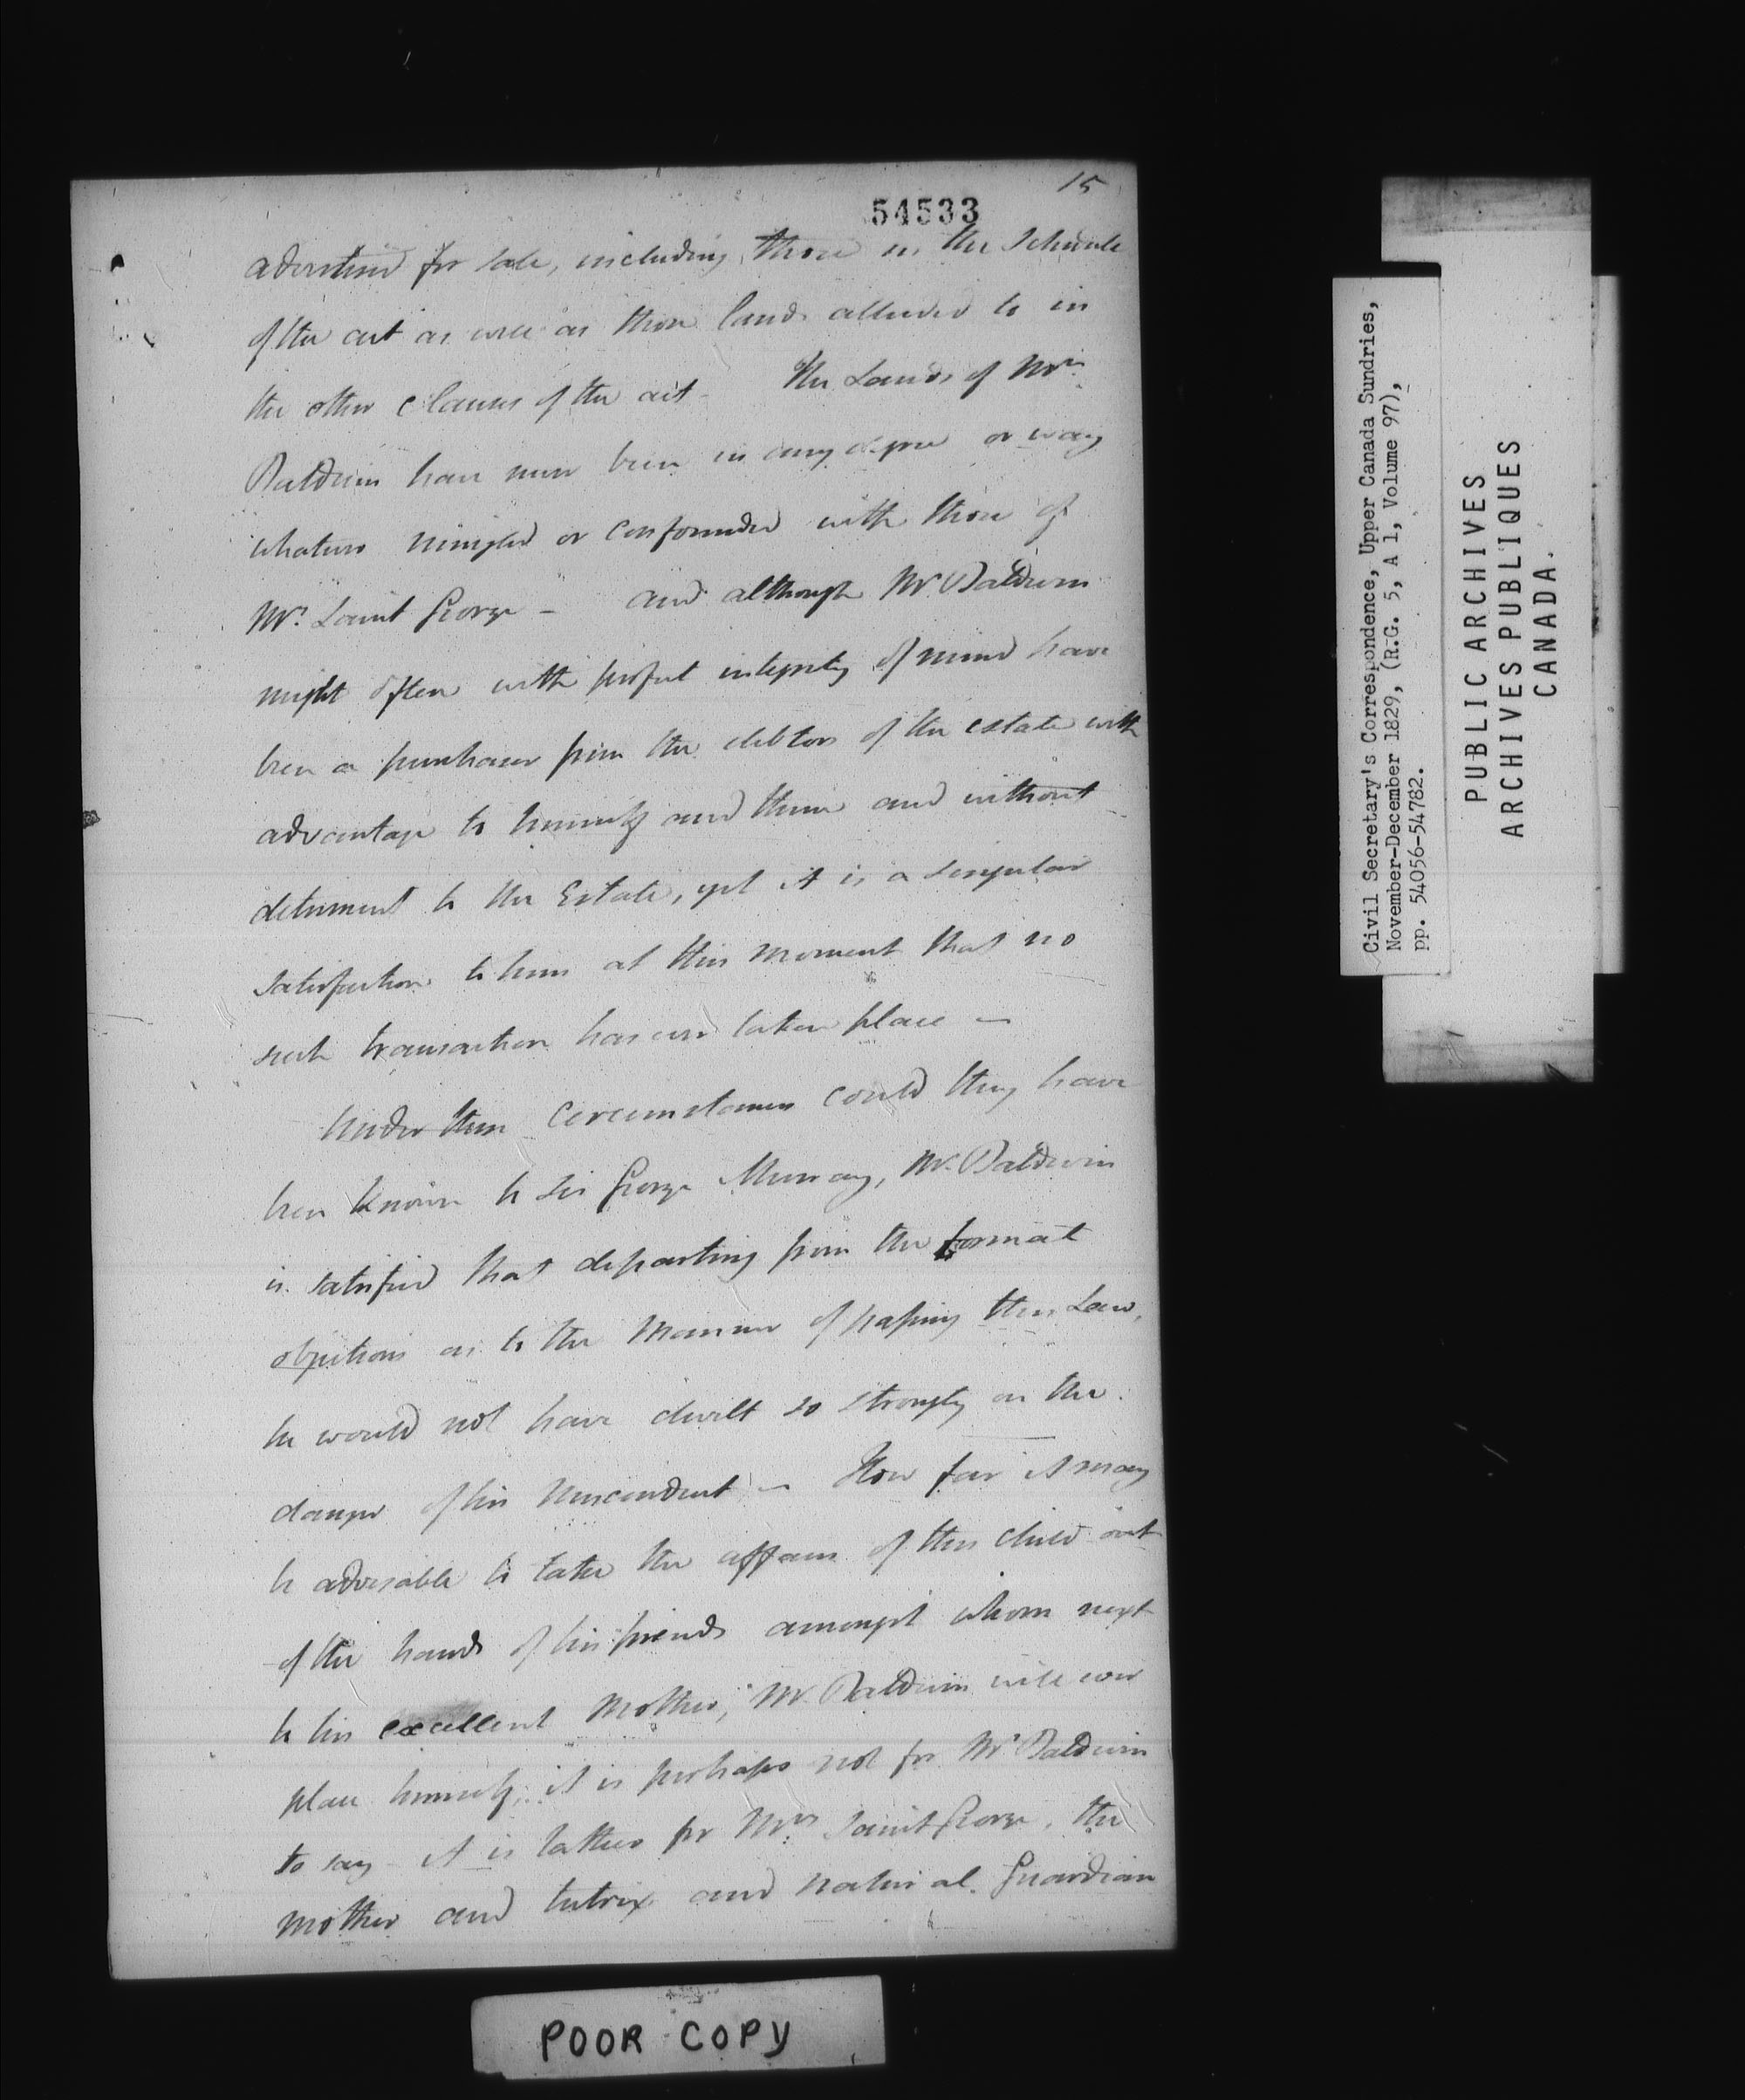 15
54533
advertised for sale, including those in the Schedule
of the act as well as those lands alluded to in
the other clauses of the act - The Lands of Mr.
Baldwin have never been in any degree or way
whatever mingled or confounded with those of
Mr. Saint George - and although Mr. Baldwin
might often with perfect integrity of mind have
been a purchaser from the debtors of the estate with
advantage to himself and them and without
detriment to the Estate, yet it is a singular
satisfaction to him at this moment that no
such transaction has ever taken place -
Under these circumstances could they have
been known to Sir George Murray, Mr. Baldwin
is satisfied that departing from the formal
objections as to the manner of passing this Law,
he would not have dwelt so strongly on the
danger of his - How far it may
be advisable to take the affairs of this child out
of the hands of his friends amongst whom next
to his excellent Mother, Mr. Baldwin will ever
place himself; it is perhaps not for Mr Baldwin
to say - it is rather for Mrs. Saint George, the
mother and tutrix and natural Guardian
POOR COPY
Civil Secretary's Correspondence, Upper Canada Sundries,
November-December 1829, (R.G. 5, A 1, Volume 97),
pp. 54056-54782.
PUBLIC ARCHIVES
ARCHIVES PUBLIQUES
CANADA.